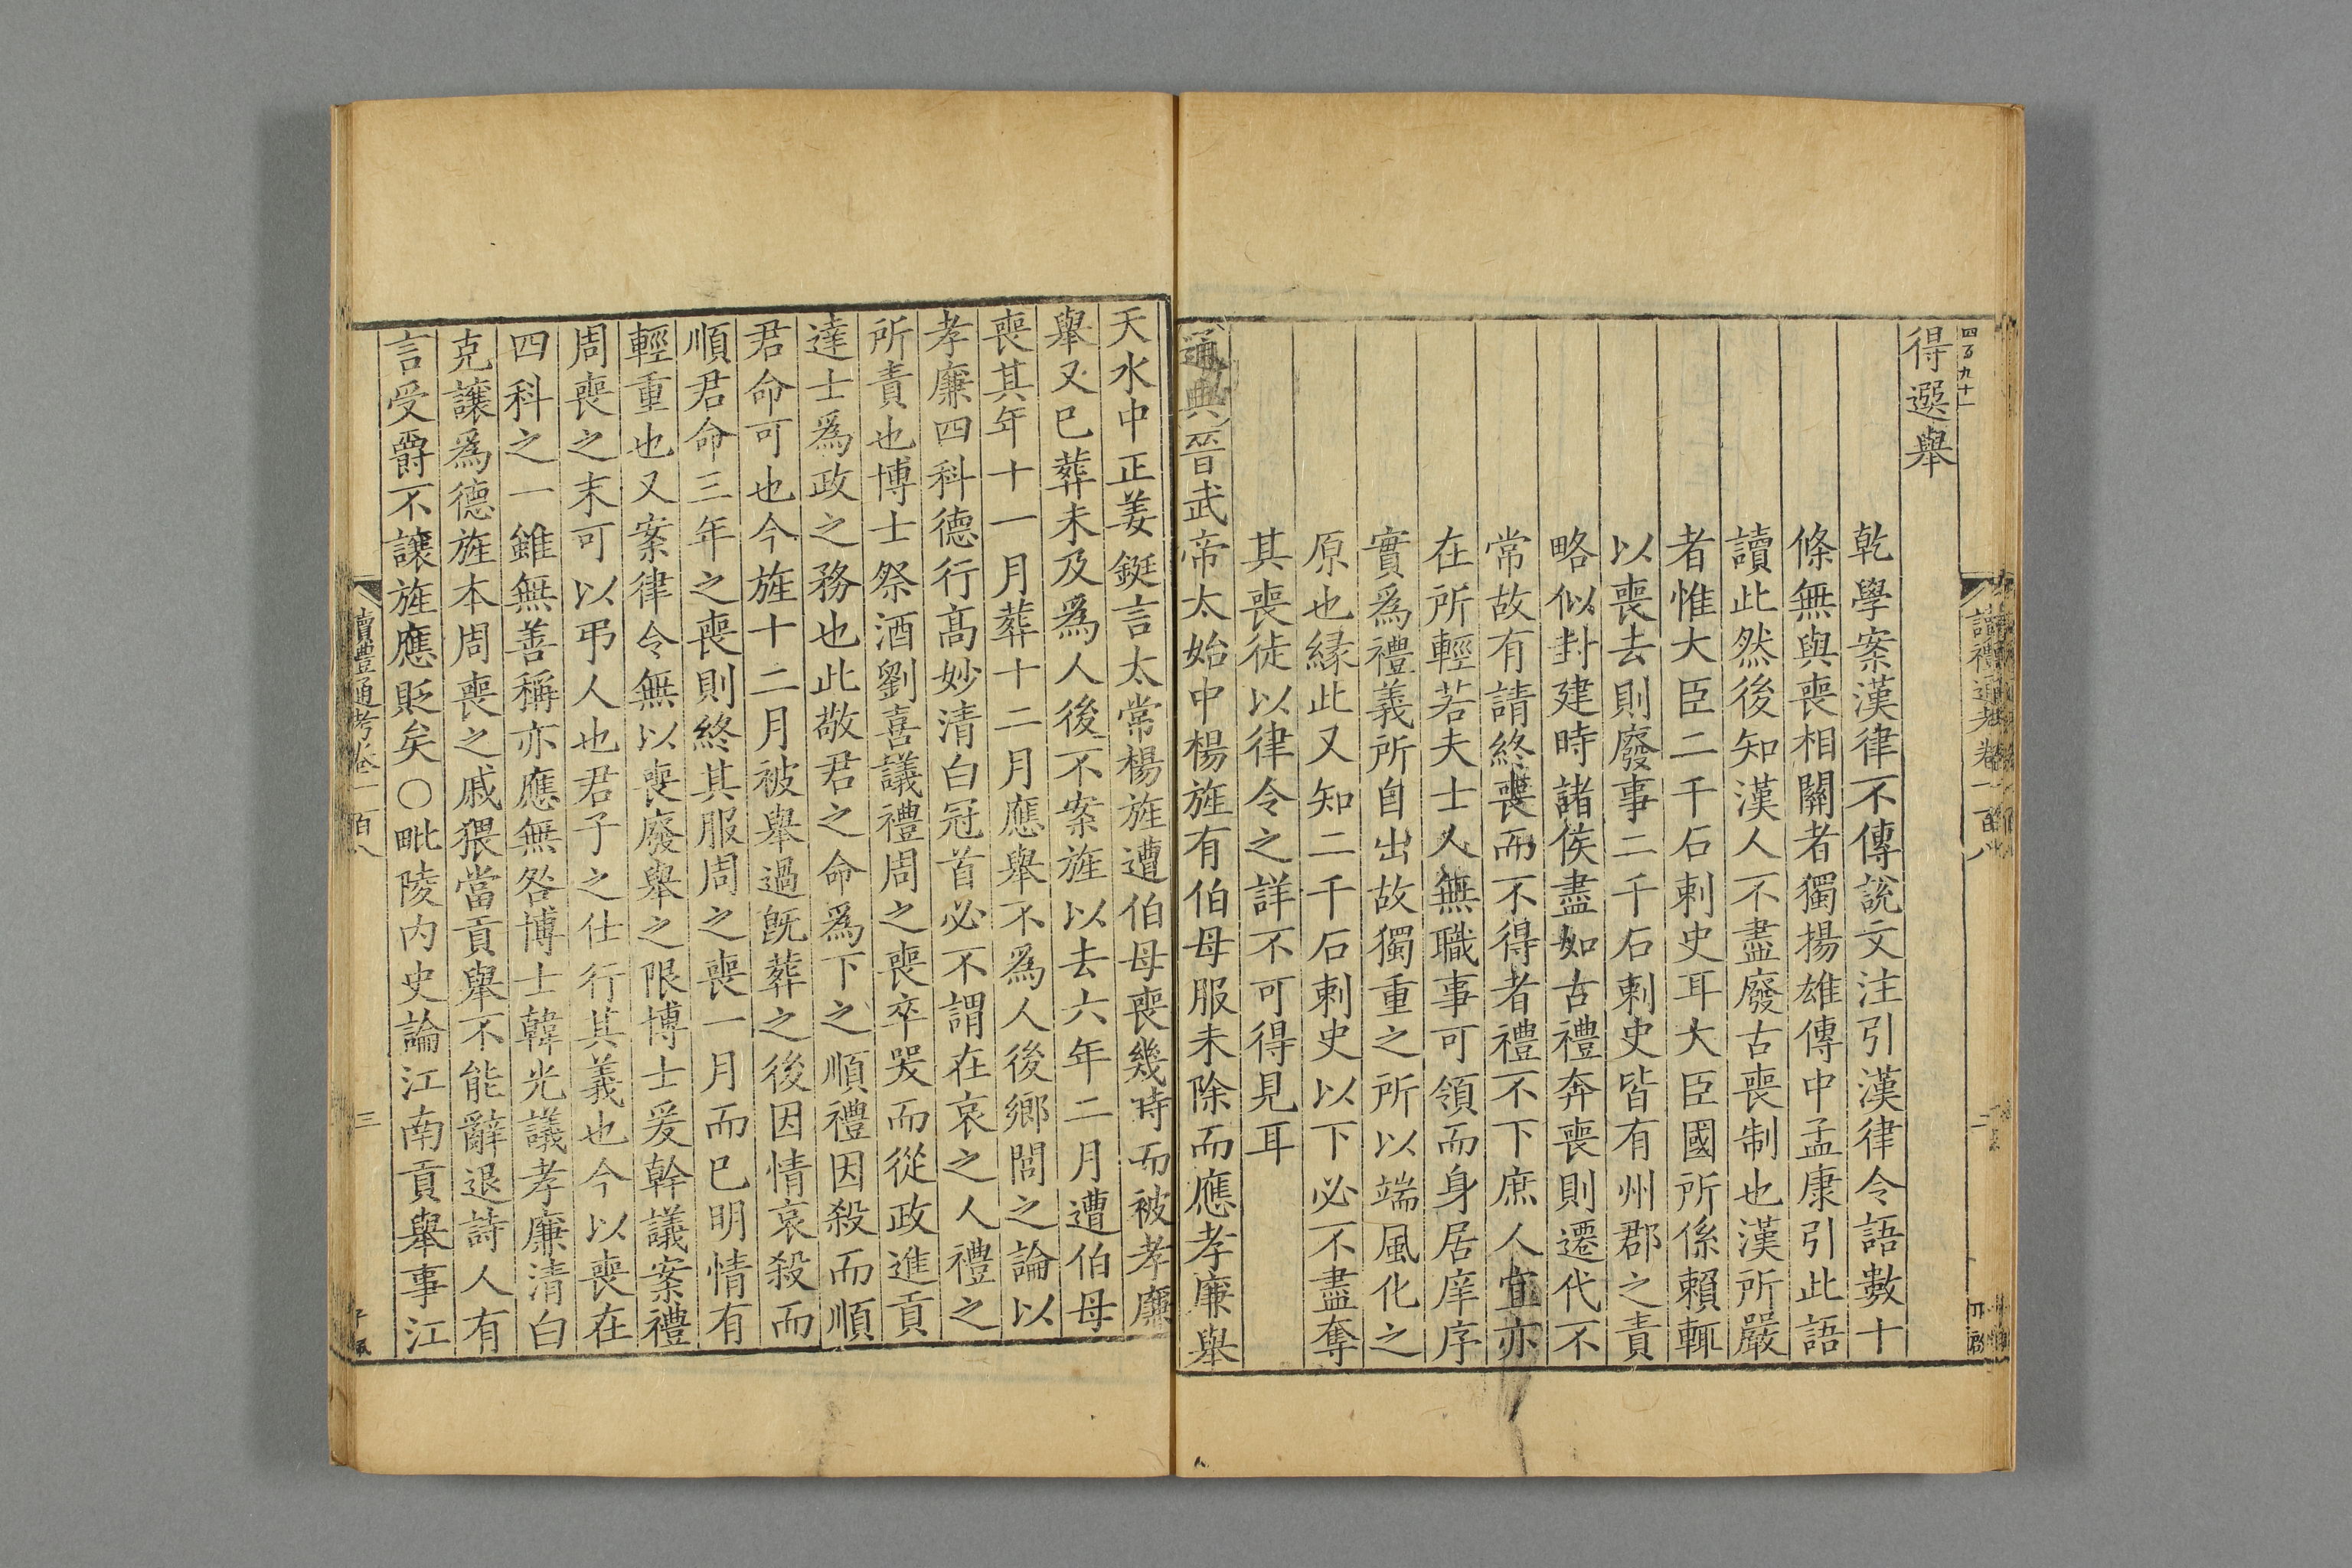 四百九十一
讀禮通考卷一百八
二
得選舉
乾學案漢律不傳說文注引漢律令語數十
條無與喪相關者獨揚雄傳中孟康引此語
讀此然後知漢人不盡廢古喪制也漢所嚴
者惟大臣二千石刺史耳大臣國所係賴輒
以喪去則廢事二千石刺史皆有州郡之責
略似封建時諸侯盡如古禮奔喪則遷代不
常故有請終喪而不得者禮不下庶人宜亦
在所輕若夫士人無職事可領而身居庠序
實爲禮義所自出故獨重之所以端風化之
原也緣此又知二千石刺史以下必不盡奪
其喪徒以律令之詳不可得見耳
通典晉武帝太始中楊旌有伯母服未除而應孝廉舉
天水中正姜鋌言太常楊旌遭伯母喪幾時而被孝廉
舉又已葬未及爲人後不案旌以去六年二月遭伯母
喪其年十一月葬十二月應舉不爲人後鄉閭之論以
孝廉四科德行高妙清白冠首必不謂在哀之人禮之
所責也博士祭酒劉喜議禮周之喪卒哭而從政進貢
達士爲政之務也此敬君之命爲下之順禮因殺而順
君命可也今旌十二月被舉過旣葬之後因情哀殺而
順君命三年之喪則終其服周之喪一月而已明情有
輕重也又案律令無以喪廢舉之限博士爰幹議案禮
周喪之末可以弔人也君子之仕行其義也今以喪在
四科之一雖無善稱亦應無咎博士韓光議孝廉清白
克讓爲德旌本周喪之戚猥當貢舉不能辭退詩人有
言受爵不讓旌應貶矣○毗陵內史論江南貢舉事江
讀禮通考卷一百八
三